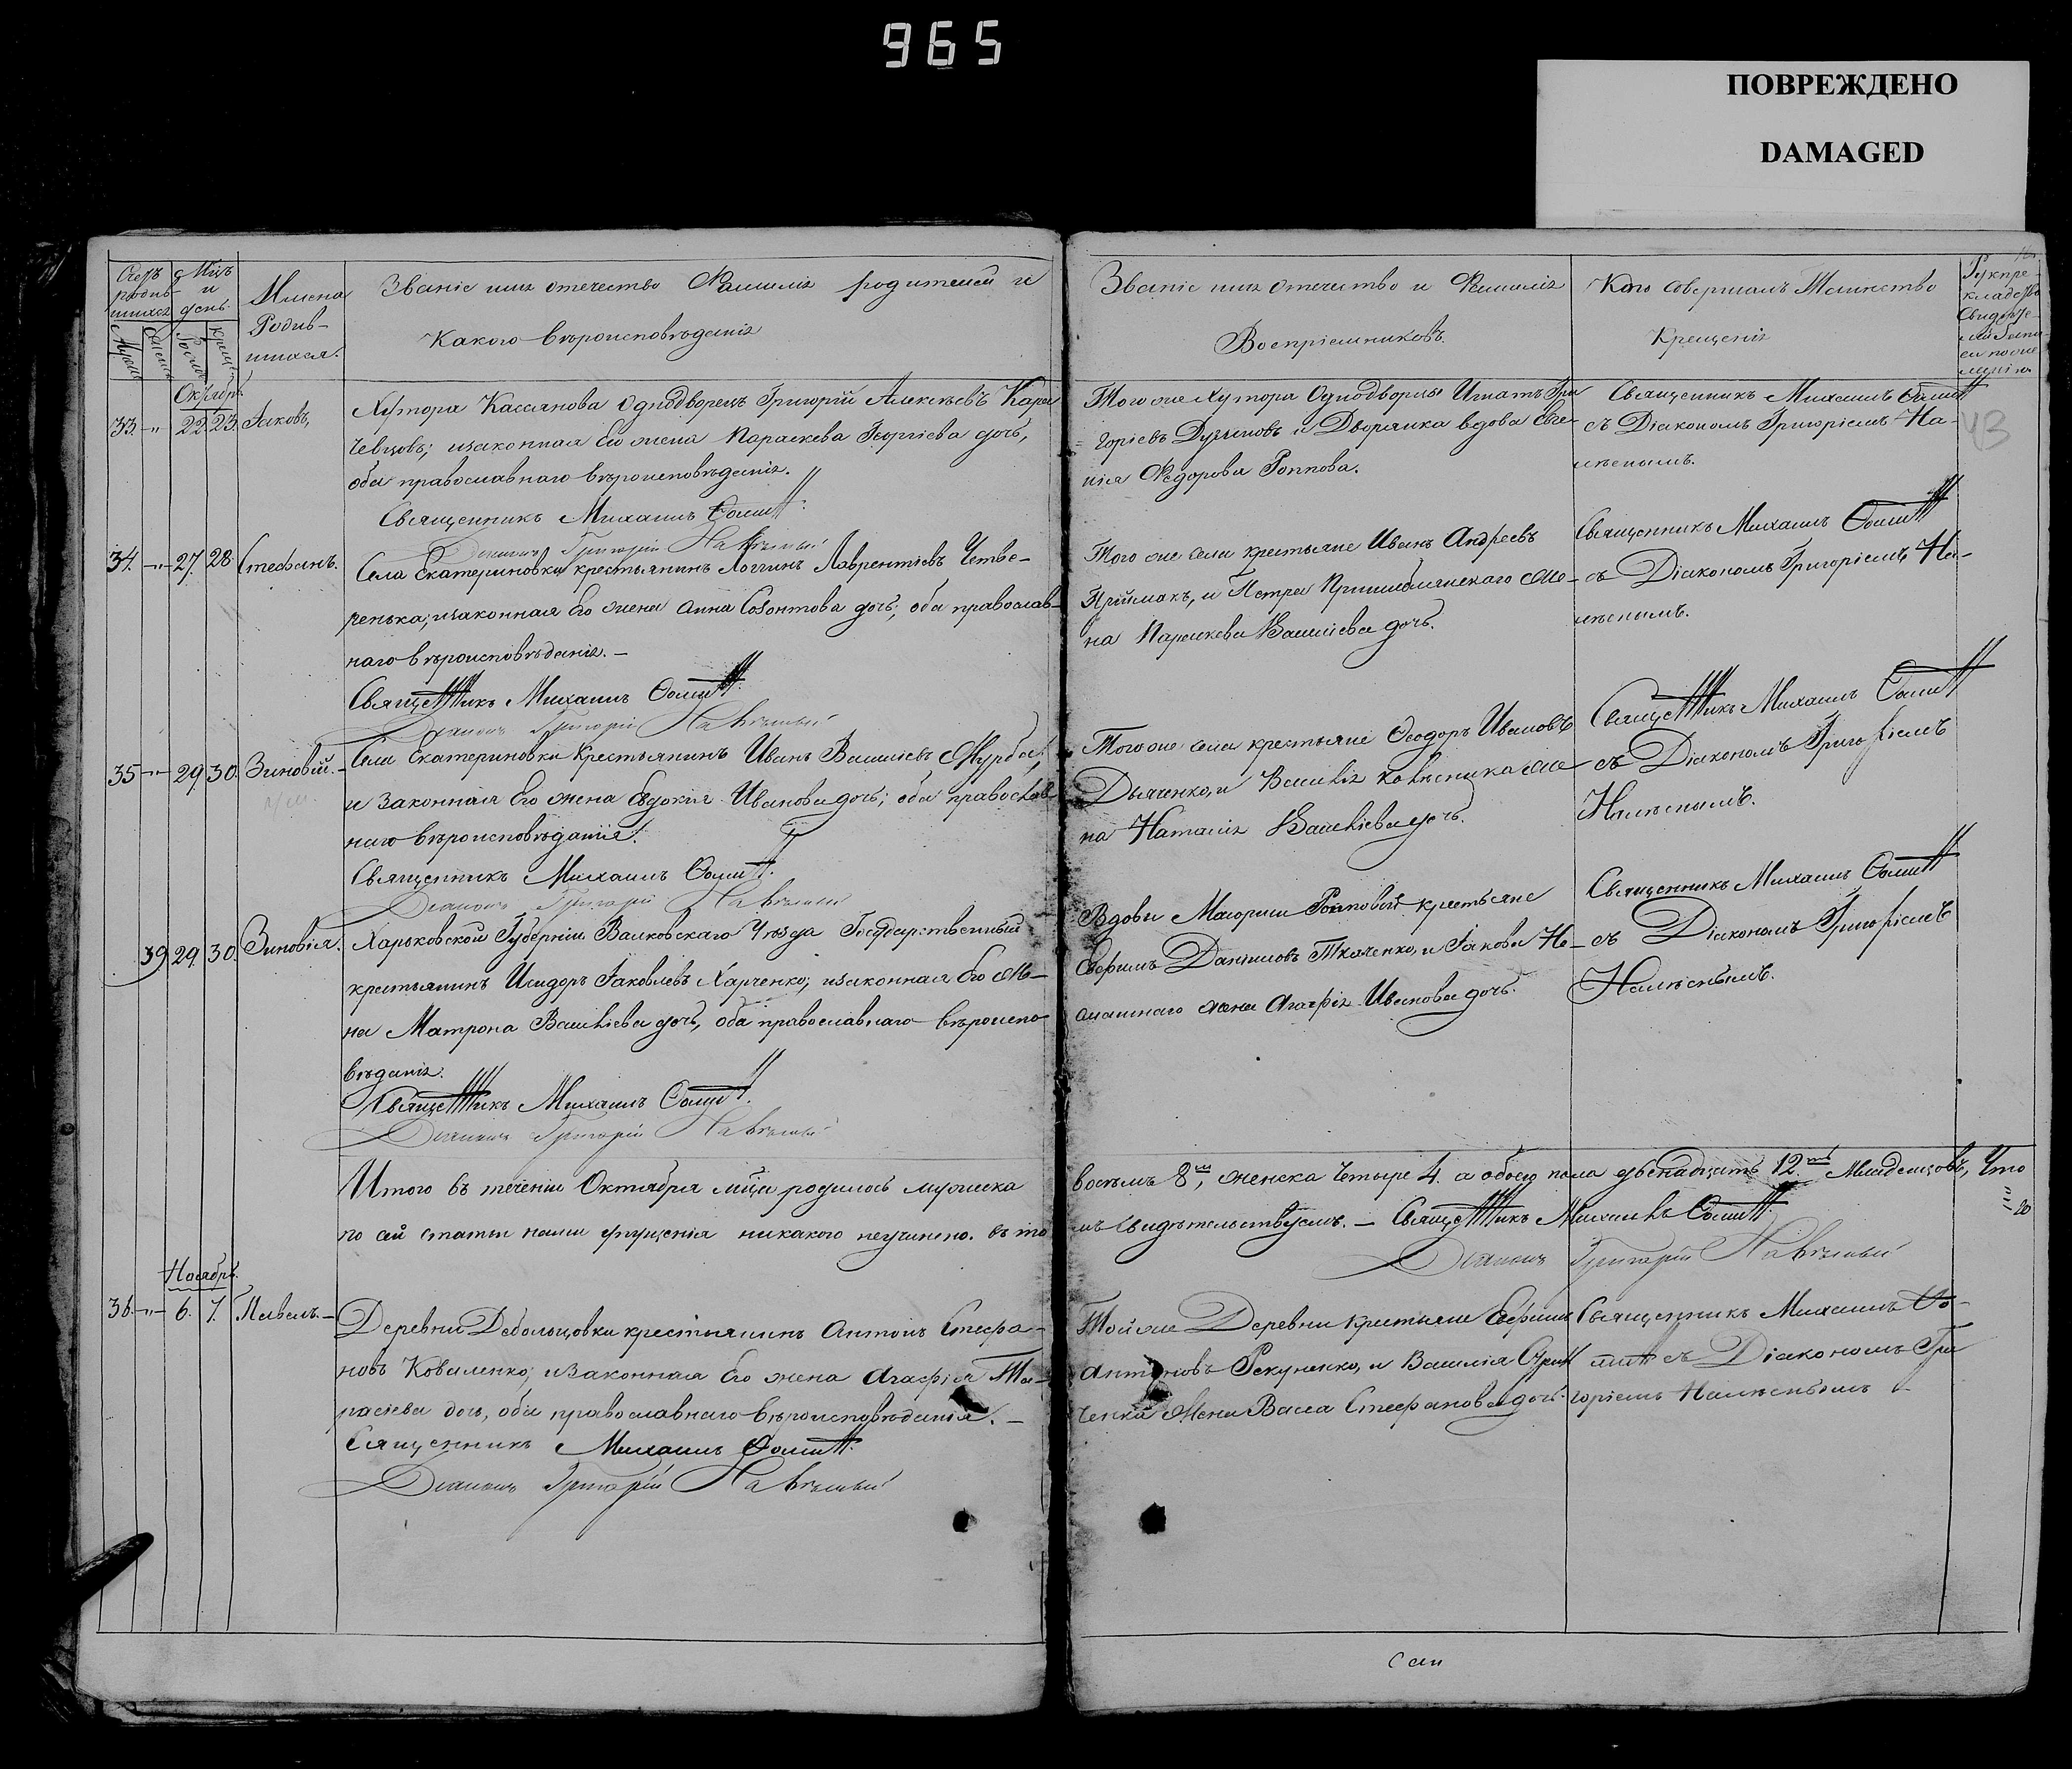 965
ПОВРЕЖДЕНО
DAMAGED
Счетъ родив-шихся
Мѣц. и день.
Имена Родив-шихся.
Званіе имя отечество Фамилія родителей и
Какого вѣроисповѣданія
Званіе имя отечество и Фамилія
Воспріемниковъ.
Кто совершалъ Таинство
Крещенія
Октябрь
33. " 22. 23. Іаковъ,
Хутора Кассьянова Однодворецъ Григорій Алексѣевъ Кара
чевцовъ; изаконная Его жена Параскева Георгіева дочь,
оба православнаго вѣроисповѣданія.
Священникъ Михаилъ
Діаконъ Григорій
Того же Хутора Однодворцы Игнатъ Гри
горіевъ и Дворянка вдова Евге-
нія Федорова Поппова.
Священникъ Михаилъ
съ Діакономъ Григоріемъ На-
43
34. " 27. 28. Стефанъ.
Села Екатериновки крестьянинъ Логгинъ Лаврентіевъ Четве-
ренька; изаконная Его жена Анна Созонтова дочь; оба православ-
наго вѣроисповѣданія. –
Священникъ Михаилъ
Діаконъ Григорій
Того же села крестьяне Иванъ Андреевъ
Приймакъ, и Петра же-
на Параскева Василіева дочь.
Священникъ Михаилъ
съ Діакономъ Григоріемъ На-
35 " 29. 30. Зиновій. –
Села Екатериновки Крестьянинъ Иванъ Василіевъ Журба,
и законная Его жена Евдокія Иванова дочь; оба православ-
наго вѣроисповѣданія.
Священникъ Михаилъ
Діаконъ Григорій
Того же села крестьяне Ѳеодоръ Ивановъ
Дьяченко, и Василія Колѣсника же-
на Наталія Василіева дочь.
Священникъ Михаилъ
съ Діакономъ Григоріемъ
39 29. 30. Зиновія.
Харьковской Губерніи Валковскаго Уѣзда Государственный
крестьянинъ Исидоръ Іаковлевъ Харченко; изаконная Его Же-
на Матрона Василіева дочь, оба православнаго вѣроиспо-
вѣданія.
Священникъ Михаилъ
Діаконъ Григорій
Вдовы Маіорши Попповой крестьяне
Ефимъ Даніиловъ Ткаченко, и Іакова
жена Агафія Иванова дочь.
Священникъ Михаилъ
съ Діакономъ Григоріемъ
Итого въ теченіи Октября мѣца родилось мужеска
восемъ 8, женска четыре 4. а обоего пола двѣнадцать 12. Младенцовъ, Что
по сей статьи нами упущенія никакого неучинено. въ то
мъ свидѣтельствуемъ. – Священникъ Михаилъ
Діаконъ Григорій
Ноябрь.
36. " 6. 7. Павелъ. –
Деревни Дебольцовки крестьянинъ Антонъ Стефа-
новъ Коваленко; изаконная Его жена Агафія Та-
расіева дочь, оба православнаго вѣроисповѣданія. –
Священникъ Михаилъ
Діаконъ Григорій
Той же Деревни крестьяне Ефимъ
Антоновъ Рекуненко, и Василія
Жена Васса Стефанова дочь.
Священникъ Михаилъ
съ Діакономъ Гри
горіемъ